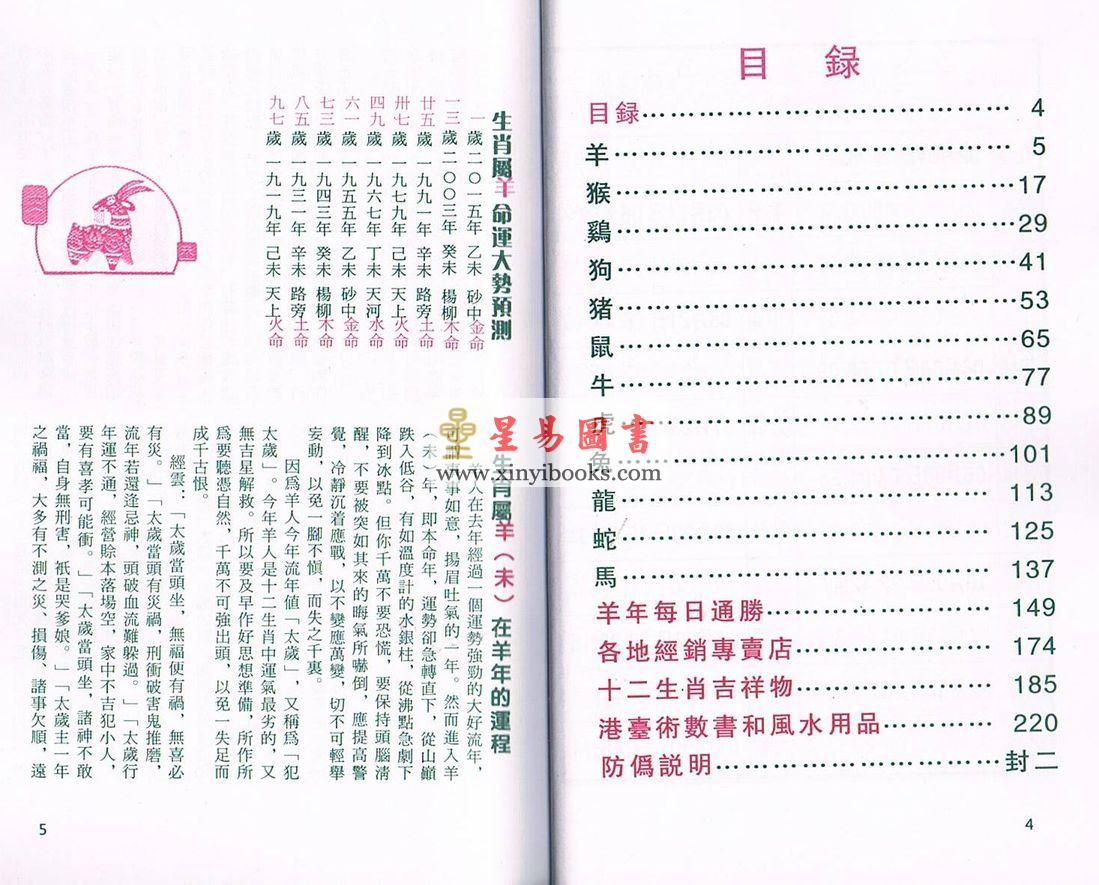 目録
目録……………………………… 4
羊……………………………… 5
猴………………………………17
鷄………………………………29
狗………………………………41
猪………………………………53
鼠………………………………65
牛………………………………77
虎………………………………89
兔………………………………101
龍………………………………113
蛇………………………………125
馬………………………………137
羊年每日通勝……………………149
各地經銷專賣店…………………174
十二生肖吉祥物…………………185
港臺術數書和風水用品…………220
防僞説明…………………………封二
4
生肖屬羊命運大勢預測
一歲 二〇一五年 乙未 砂中金命
一三歲 二〇〇三年 癸未 楊柳木命
廿五歲 一九九一年 辛未 路旁土命
卅七歲 一九七九年 己未 天上火命
四九歲 一九六七年 丁未 天河水命
六一歲 一九五五年 乙未 砂中金命
七三歲 一九四三年 癸未 楊柳木命
八五歲 一九三一年 辛未 路旁土命
九七歲 一九一九年 己未 天上火命
生肖屬羊（未）在羊年的運程
人在去年經過一個運勢強勁的大好流年，
可謂事事如意，揚眉吐氣的一年。然而進入羊
（未）年，即本命年，運勢卻急轉直下，從山巔
跌入低谷，有如溫度計的水銀柱，從沸點急劇下
降到冰點。但你千萬不要恐慌，要保持頭腦清
醒，不要被突如其來的晦氣所嚇倒，應提高警
覺，冷靜沉着應戰，以不變應萬變，切不可輕舉
妄動，以免一腳不慎，而失之千裏。
因爲羊人今年流年值「太歲」，又稱爲「犯
太歲」。今年羊人是十二生肖中運氣最劣的，又
無吉星解救。所以要及早作好思想準備，所作所
爲要聽憑自然，千萬不可強出頭，以免一失足而
成千古恨。
經雲：「太歲當頭坐，無福便有禍，無喜必
有災。」「太歲當頭有災禍，刑衝破害鬼推磨，
流年若還逢忌神，頭破血流難躲過。」「太歲行
年運不通，經營賒本落場空，家中不吉犯小人，
要有喜孝可能衝。」「太歲當頭坐，諸神不敢
當，自身無刑害，衹是哭爹娘。」「太歲主一年
之禍福，大多有不測之災、損傷、諸事欠順，遠
5
星易圖書
www.xinyibooks.com